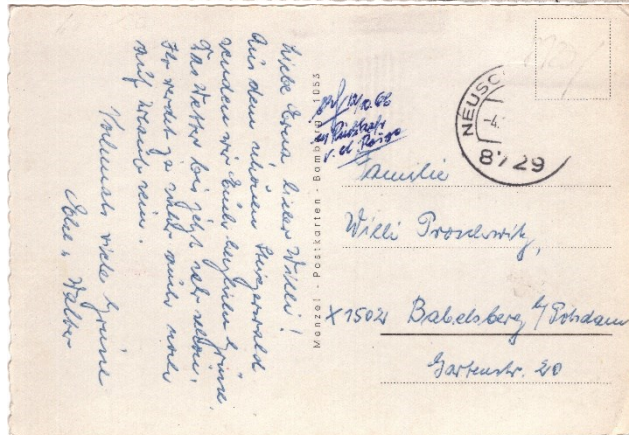 Liebe Erna, lieber Willi!
Aus dem schönen Steigerwald
senden wir Euch herzliche Grüße.
Das Wetter bis jetzt sehr schön.
Ihr werdet ja wohl auch noch
auf Urlaub sein.
Vielmals viele Grüße
u. Walter
Menzel - Postkarten - Bamberg 1053
12/10.66
v. d. Reise
NEUSC
-4.
8729
Familie
Willi Proschwitz,
X1502 Babelsberg b/Potsdam
Gartenstr. 20